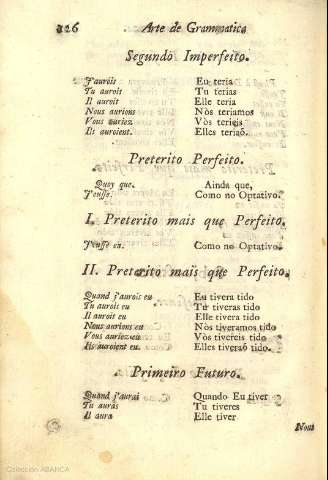 126 Arte de Grammatica
Segundo Imperfeito.
J'aurois Eu teria
Tu aurois Tu terias
Il auroit Elle teria
Nous aurions Nòs teriamos
Vous auriez Vòs terieis
Ils auroient. Elles teriaõ.
Preterito Perfeito.
Quoy que. Ainda que,
J'eusse. Como no Optativo.
I. Preterito mais que Perfeito.
J'eusse eu. Como no Optativo.
II. Preterito mais que Perfeito.
Quand j'aurois eu Eu tivera tido
Tu aurois eu Tu tiveras tido
Il aurois eu Elle tivera tido
Nous aurions eu Nòs tiveramos tido
Vous auriez eu Vòs tivereis tido
Ils auroient eu. Elles tiveraõ tido.
Primeiro Futuro.
Quand j'aurai Quando Eu tiver
Tu auras Tu tiveres
Il aura Elle tiver
Nous
Colección ABANCA